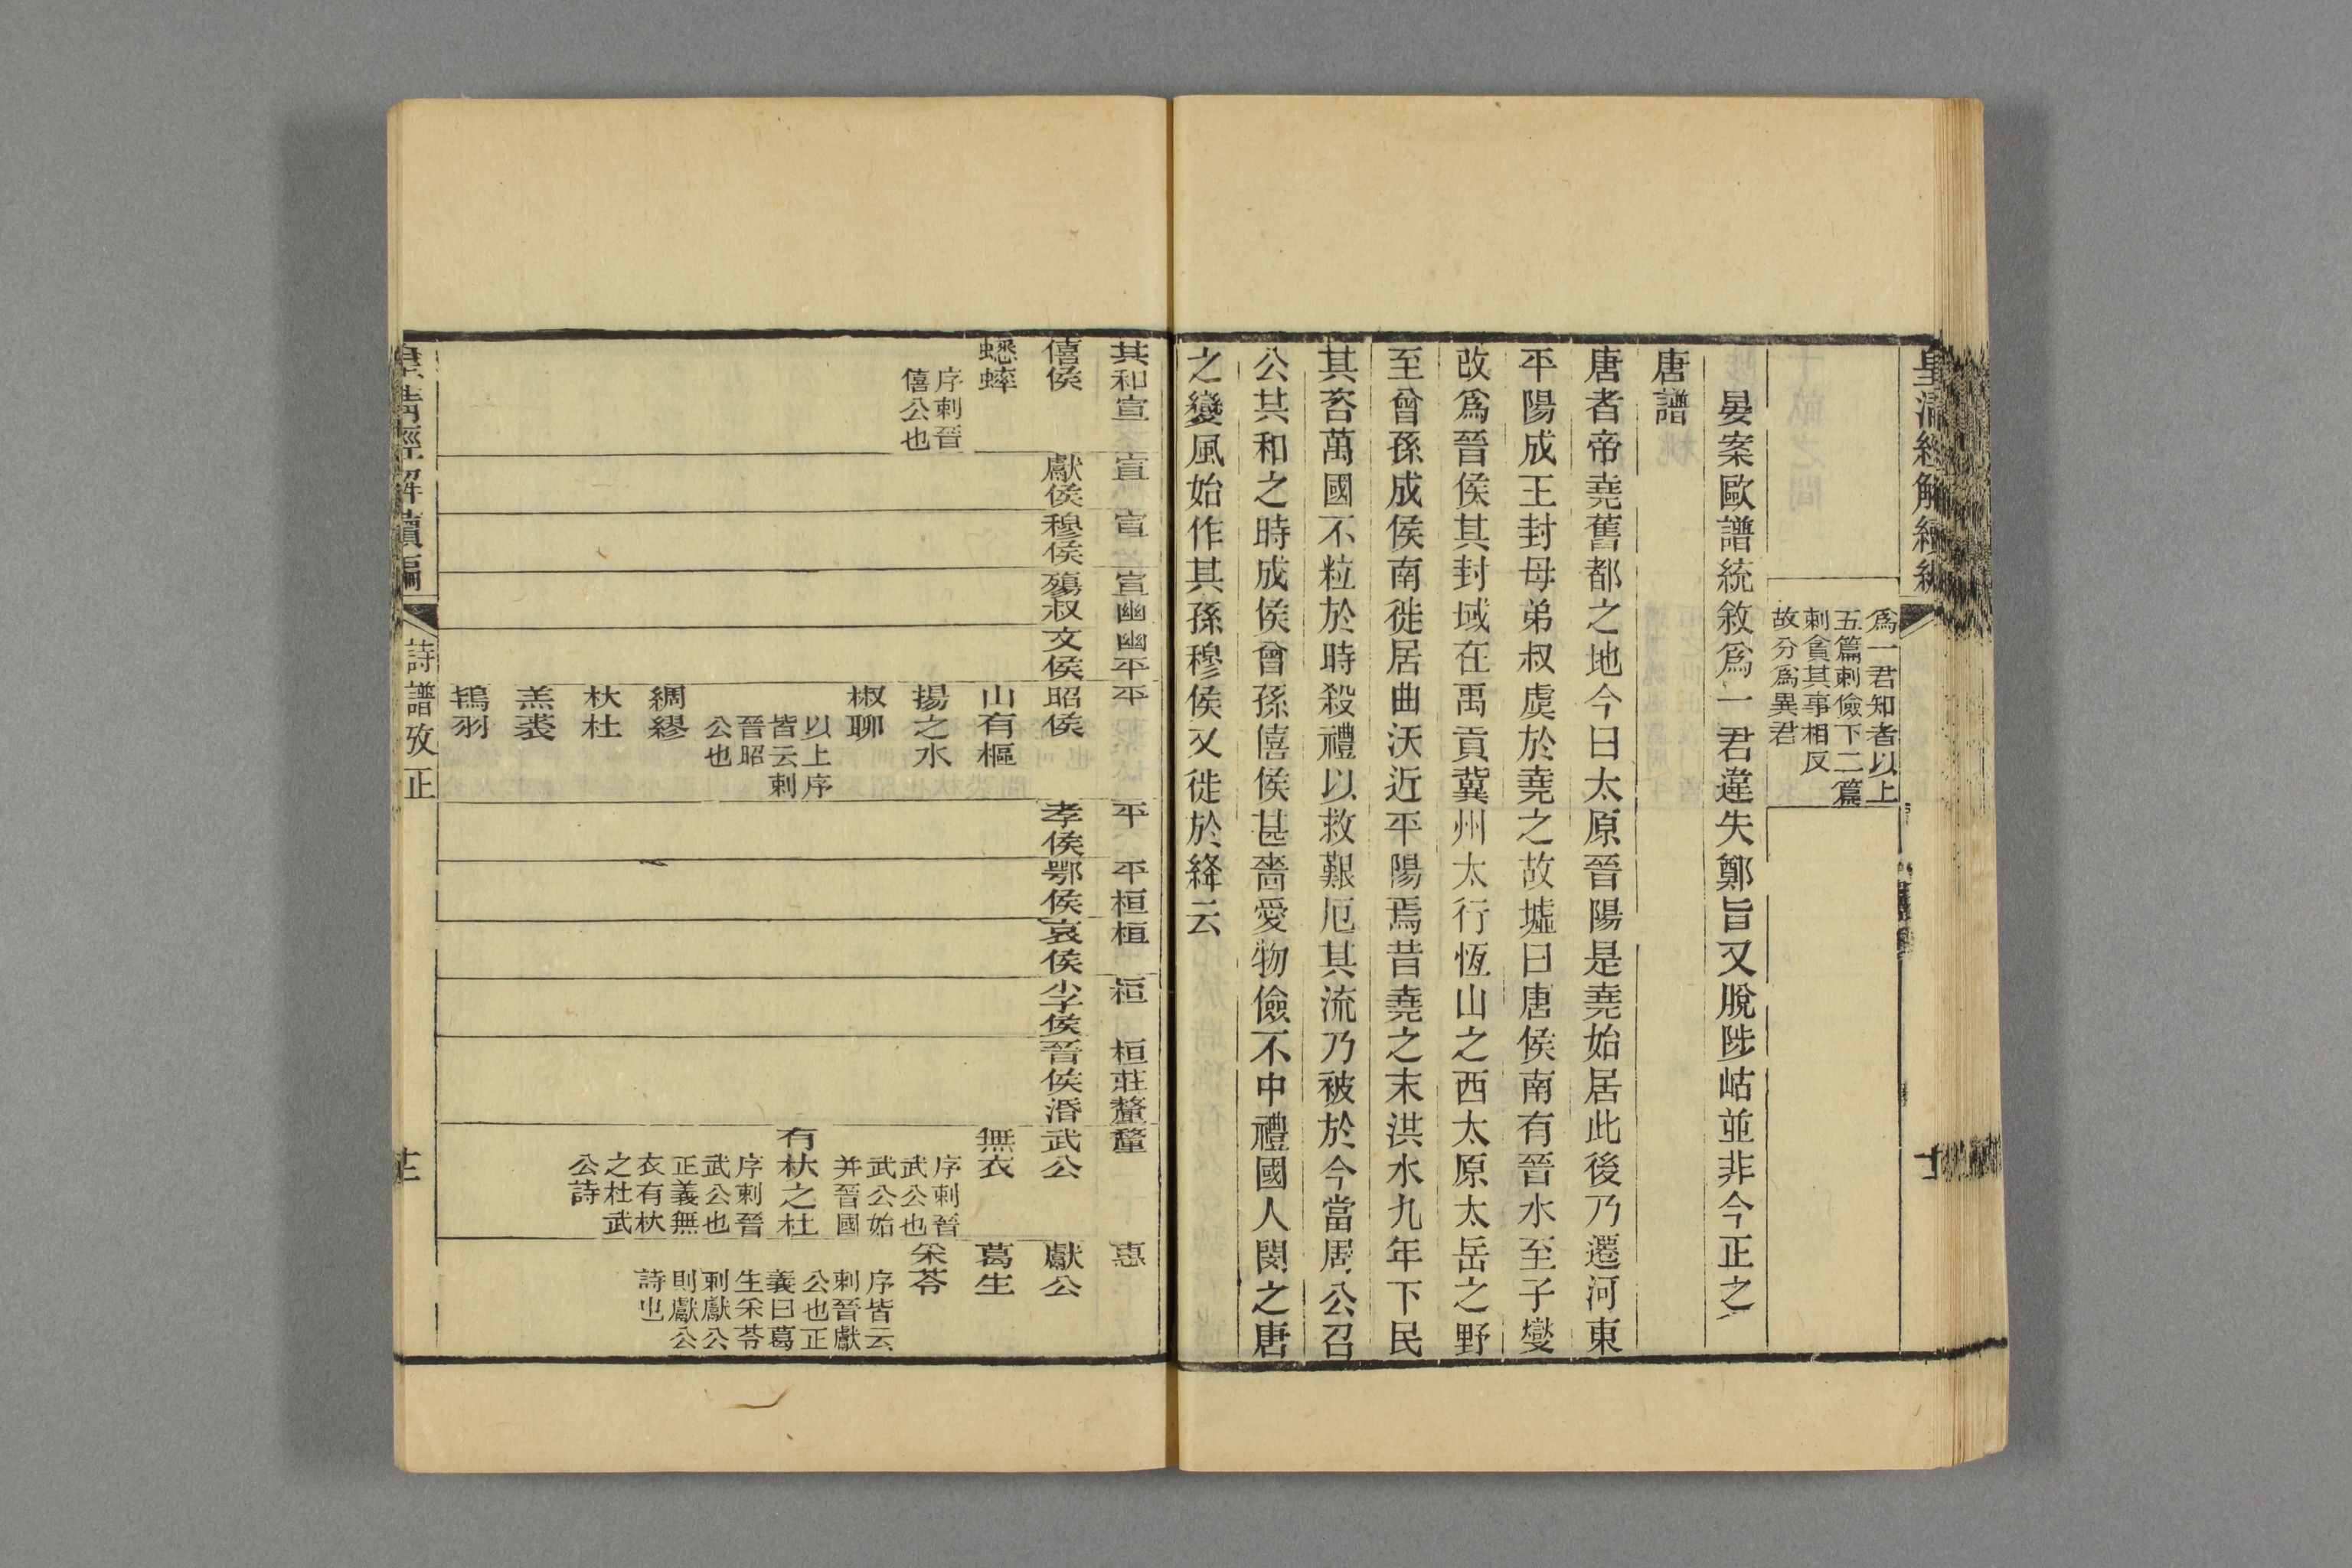 爲一君知者以上
五篇刺儉下二篇
刺貪其事相反
故分爲異君
晏案歐譜統敘爲一君違失鄭旨又脫陟岵並非今正之
唐譜
唐者帝堯舊都之地今曰太原晉陽是堯始居此後乃遷河東
平陽成王封母弟叔虞於堯之故墟曰唐侯南有晉水至子燮
改爲晉侯其封域在禹貢冀州太行恆山之西太原太岳之野
至曾孫成侯南徙居曲沃近平陽焉昔堯之末洪水九年下民
其咨萬國不粒於時殺禮以救艱厄其流乃被於今當周公召
公共和之時成侯曾孫僖侯甚嗇愛物儉不中禮國人閔之唐
之變風始作其孫穆侯又徙於絳云
共和宣
僖侯
蟋蟀
序刺晉
僖公也
宣
獻侯
宣
穆侯
宣幽
殤叔
幽平
文侯
平
昭侯
山有樞
揚之水
椒聊
以上序
皆云刺
晉昭
公也
綢繆
杕杜
羔裘
鴇羽
平
孝侯
平桓
鄂侯
桓
哀侯
桓
小子侯
桓莊釐
晉侯湣
釐
武公
無衣
序刺晉
武公也
武公始
并晉國
有杕之杜
序刺晉
武公也
正義無
衣有杕
之杜武
公詩
惠
獻公
葛生
采苓
序皆云
刺晉獻
公也正
義曰葛
生采苓
刺獻公
則獻公
詩也
皇清經解續編
詩譜攷正